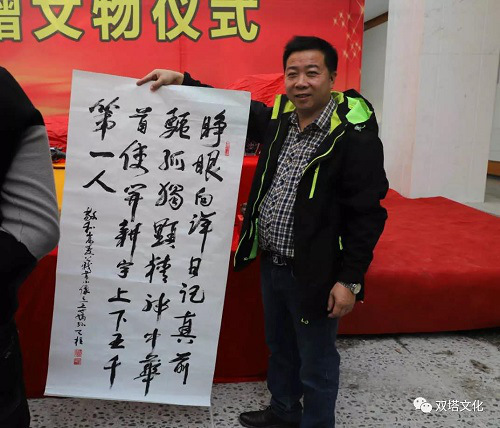 赠文物仪式
睁眼向洋日记真前
驅孤獨顯精神中華
首使開新宇上下五千
第一人
双塔文化